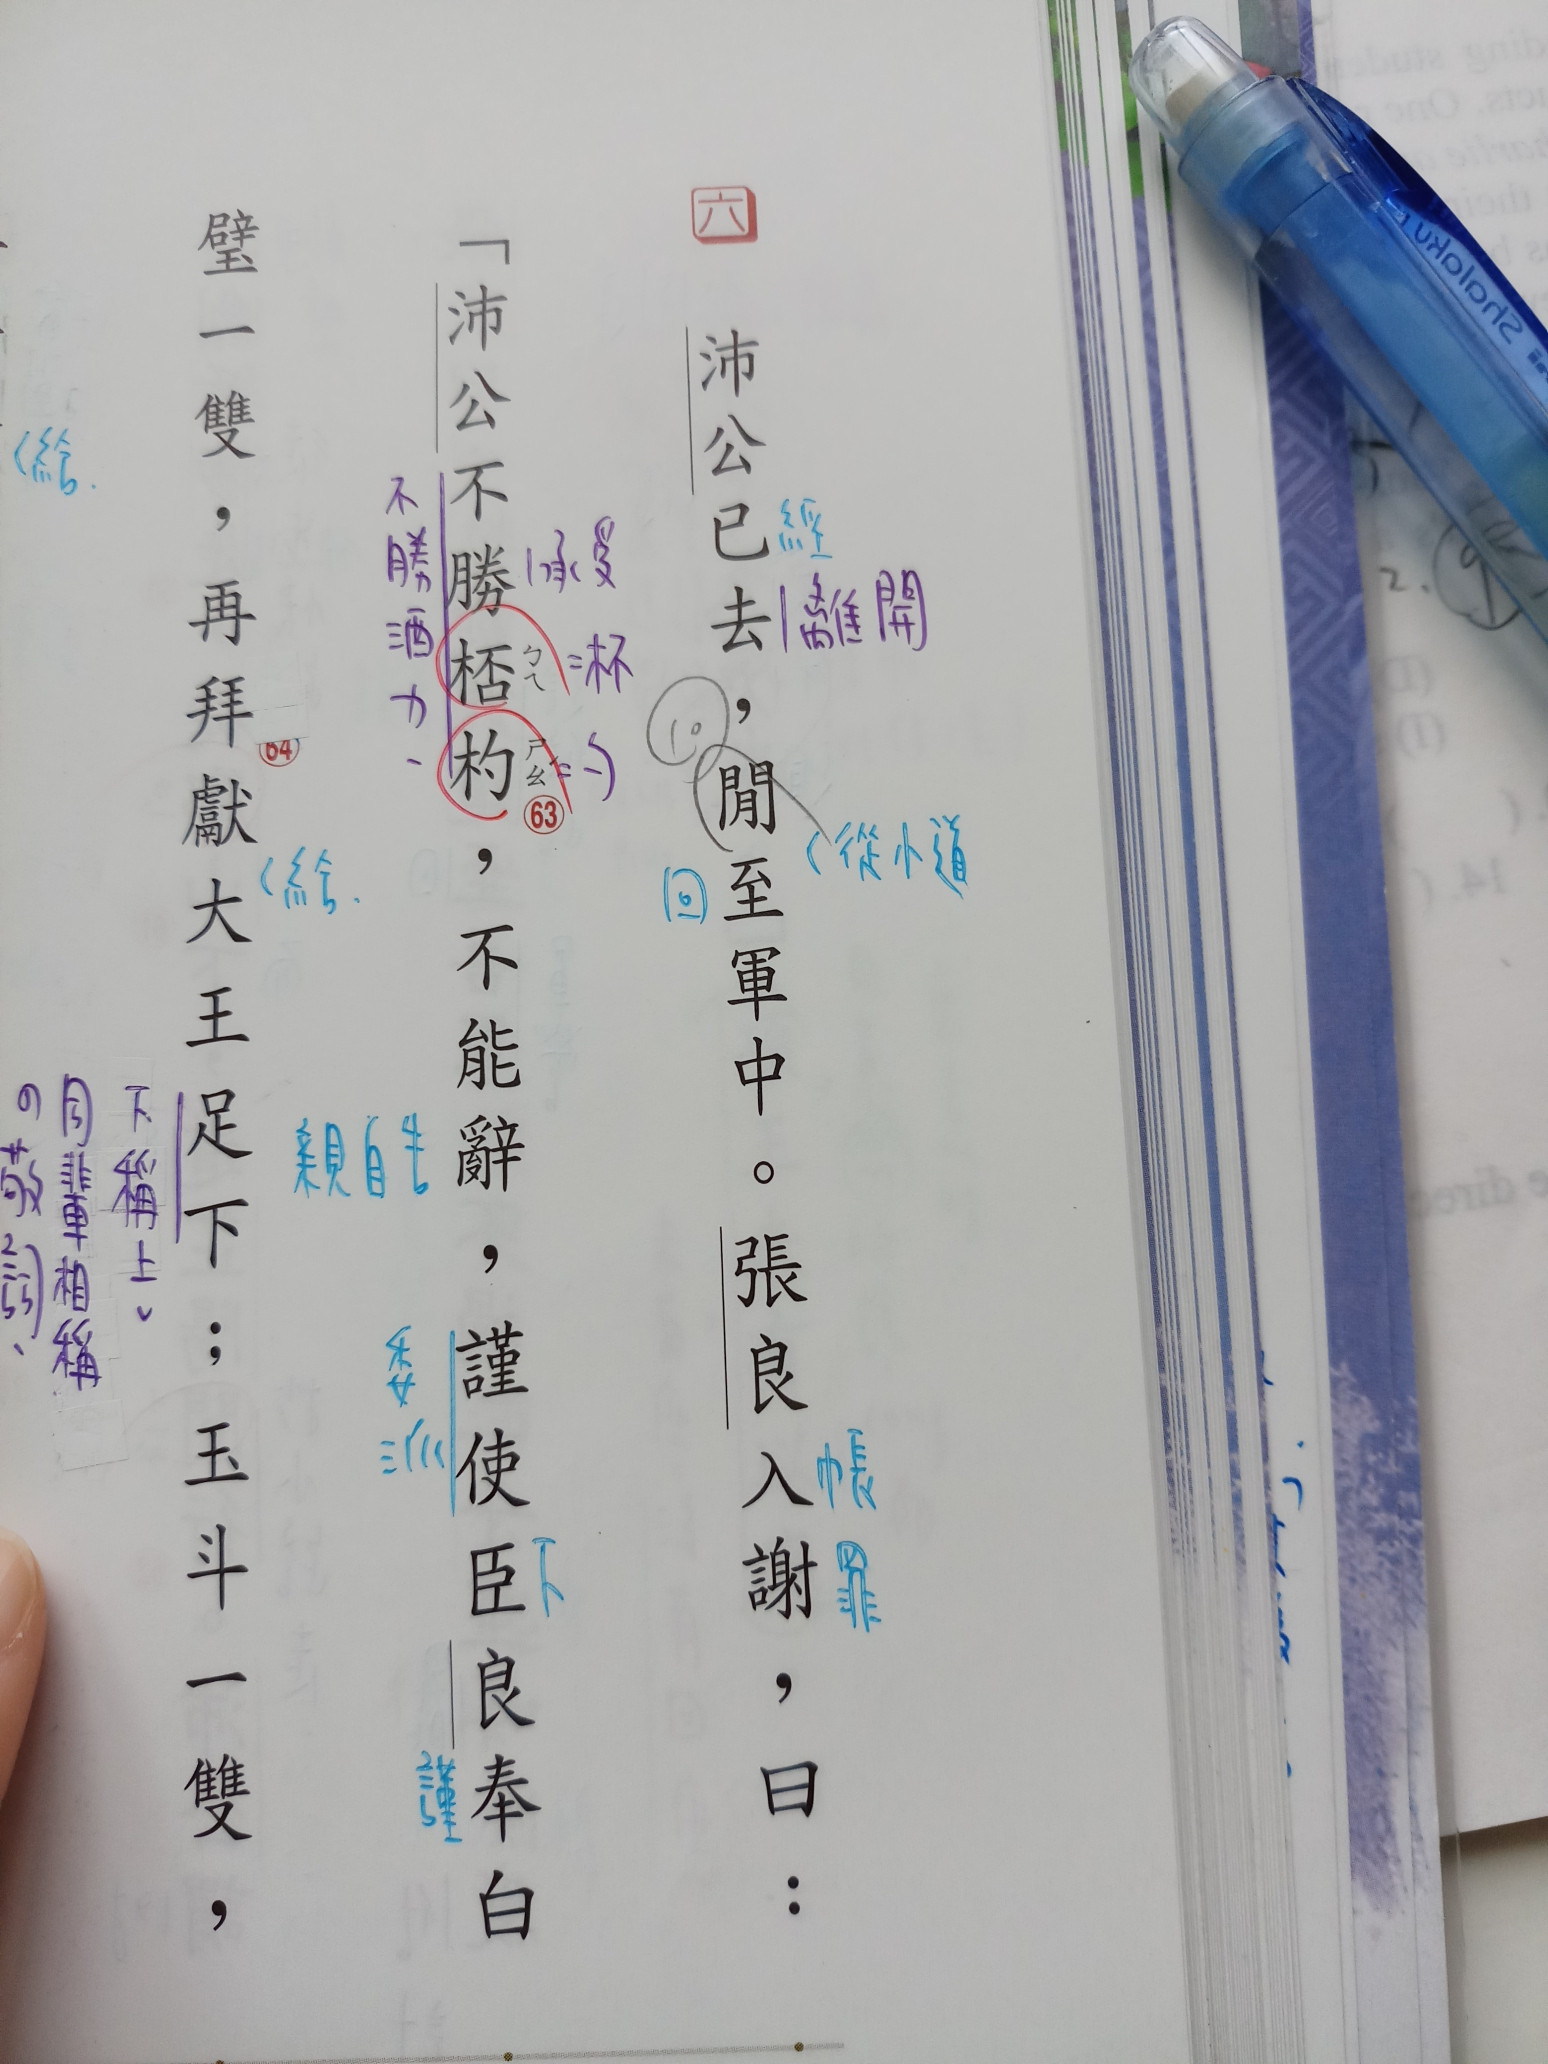 六
沛公已去，閒至軍中。張良入謝，曰：
經
離開
10
從小道
回
帳
罪
「沛公不勝桮杓，不能辭，謹使臣良奉白
承受
ㄅㄟ
=杯
ㄕㄠˊ
=勺
63
不勝酒力
親自告
委派
下
謹
璧一雙，再拜獻大王足下；玉斗一雙，
64
給
下稱上、
同輩相稱
的敬詞、
給